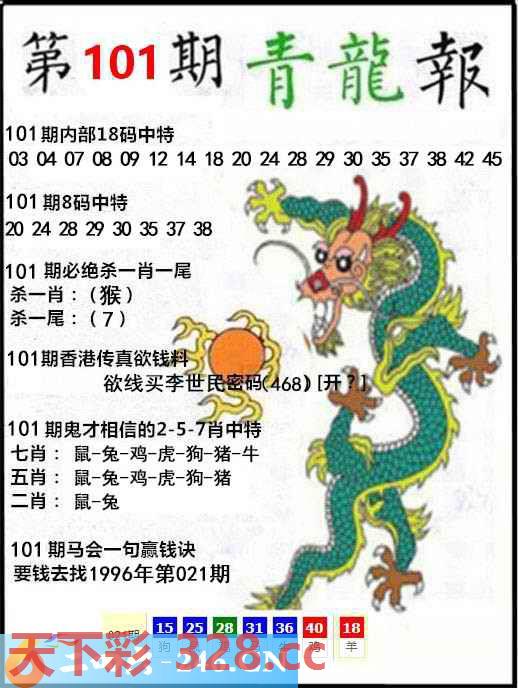 第101期青龍報
101期内部18码中特
03 04 07 08 09 12 14 18 20 24 28 29 30 35 37 38 42 45
101期8码中特
20 24 28 29 30 35 37 38
101期必绝杀一肖一尾
杀一肖：（猴）
杀一尾：（7）
101期香港传真欲钱料
欲线买李世民密码(468) [开？]
101期鬼才相信的2-5-7肖中特
七肖： 鼠-兔-鸡-虎-狗-猪-牛
五肖： 鼠-兔-鸡-虎-狗-猪
二肖： 鼠-兔
101期马会一句赢钱诀
要钱去找1996年第021期
15 25 28 31 36 40 18
狗 鸡 羊
天下彩-328.cc